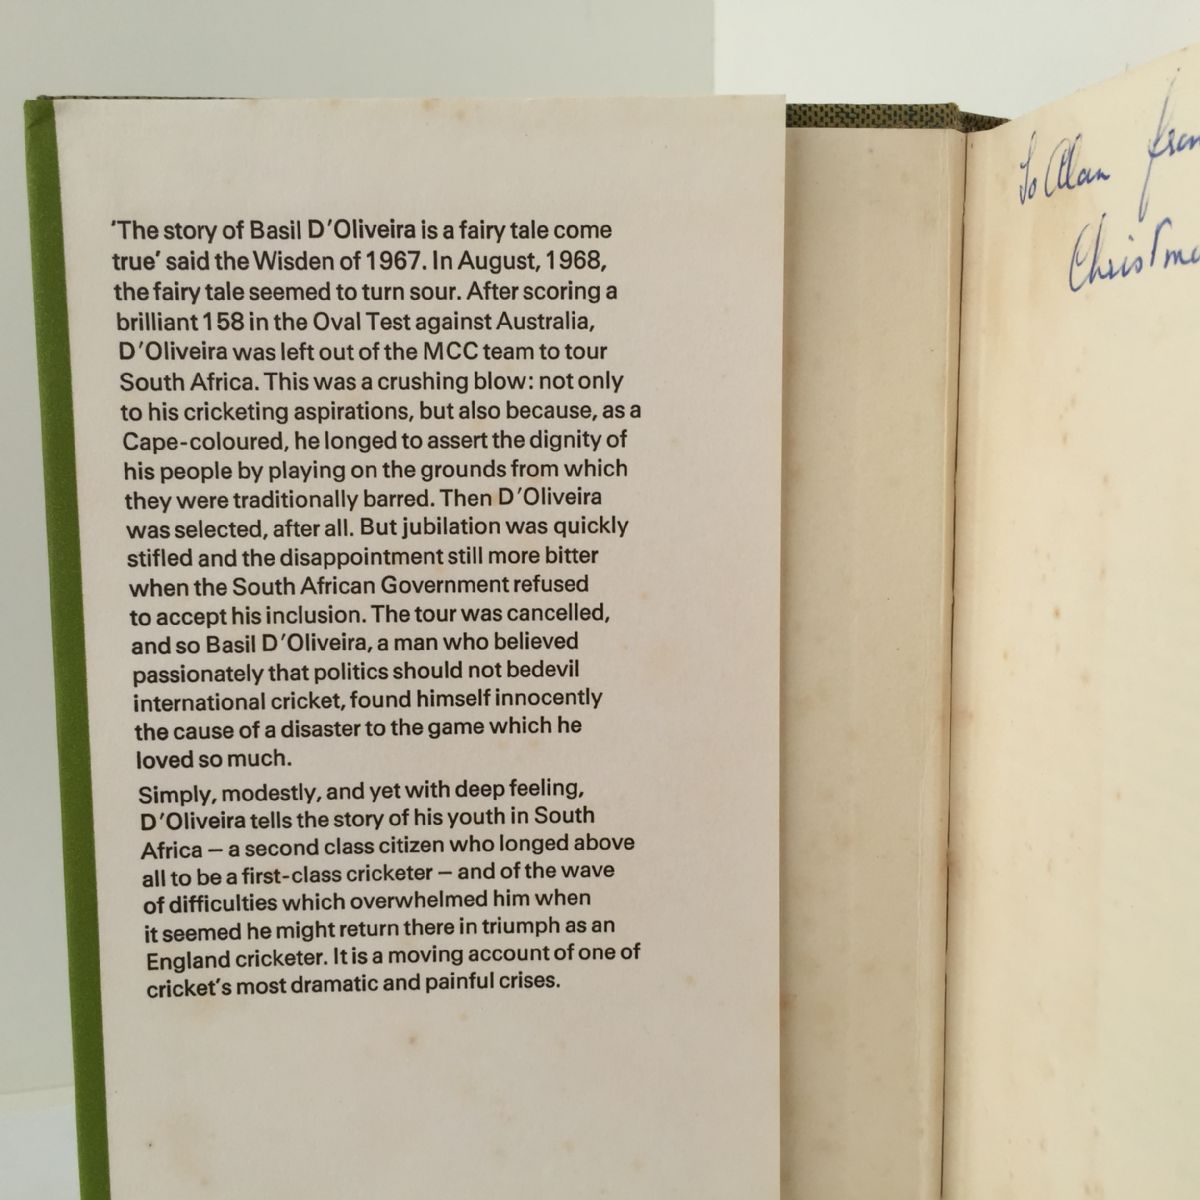 ‘The story of Basil D’Oliveira is a fairy tale come
true’ said the Wisden of 1967. In August, 1968,
the fairy tale seemed to turn sour. After scoring a
brilliant 158 in the Oval Test against Australia,
D’Oliveira was left out of the MCC team to tour
South Africa. This was a crushing blow: not only
to his cricketing aspirations, but also because, as a
Cape-coloured, he longed to assert the dignity of
his people by playing on the grounds from which
they were traditionally barred. Then D’Oliveira
was selected, after all. But jubilation was quickly
stifled and the disappointment still more bitter
when the South African Government refused
to accept his inclusion. The tour was cancelled,
and so Basil D’Oliveira, a man who believed
passionately that politics should not bedevil
international cricket, found himself innocently
the cause of a disaster to the game which he
loved so much.
Simply, modestly, and yet with deep feeling,
D’Oliveira tells the story of his youth in South
Africa – a second class citizen who longed above
all to be a first-class cricketer – and of the wave
of difficulties which overwhelmed him when
it seemed he might return there in triumph as an
England cricketer. It is a moving account of one of
cricket’s most dramatic and painful crises.
To Alan